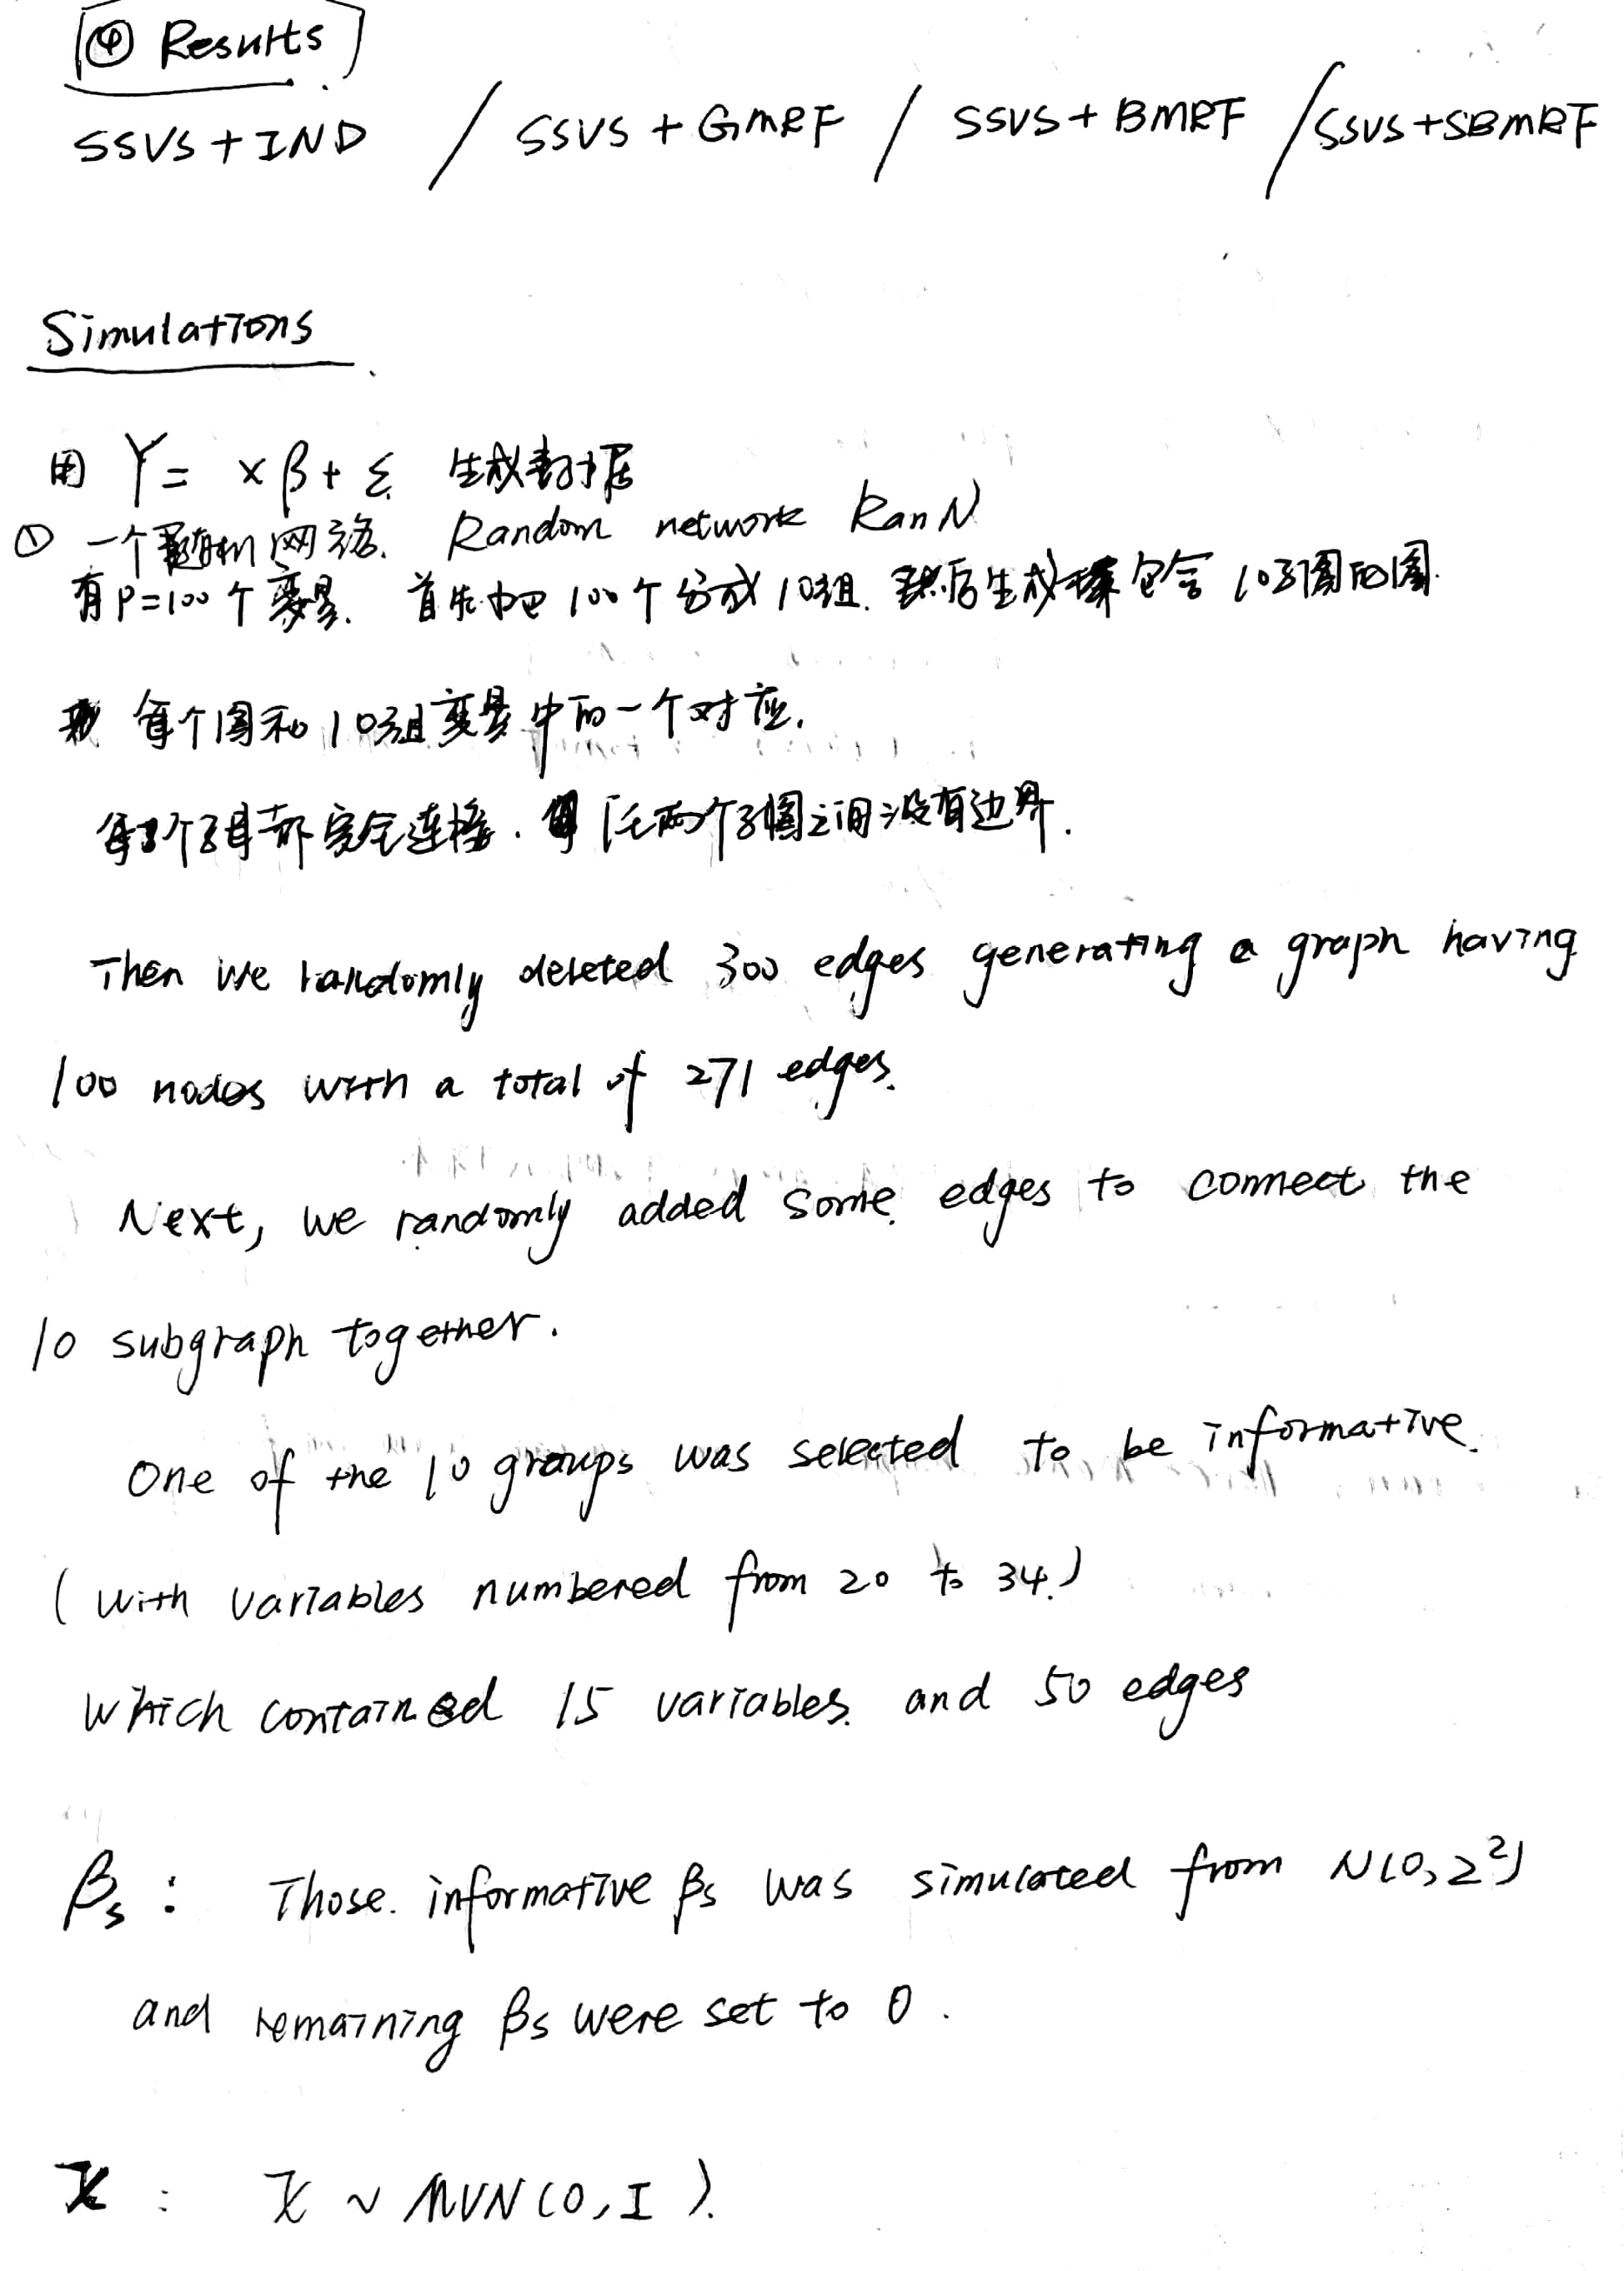 ④ Results
SSVS+IND / SSVS+GMRF / SSVS+BMRF / SSVS+SBMRF
Simulations
用 Y = xβ + ε 生成数据
① 一个随机网络. Random network RanN
有P=100个变量. 首先把100个分成10组. 然后生成 包含10子图的图.
每个图和10组变量中的一个对应.
每个子 都完全连接. 任两个子图之间没有边界.
Then we randomly deleted 300 edges generating a graph having
100 nodes with a total of 271 edges.
Next, we randomly added some edges to connect the
10 subgraph together.
One of the 10 groups was selected to be informative.
(with variables numbered from 20 to 34.)
which contained 15 variables and 50 edges
βs : Those informative βs was simulated from N(0, 2²)
and remaining βs were set to 0.
X : X ~ MVN(0, I).